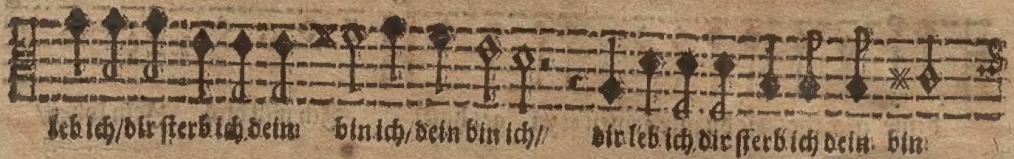 leb ich/dir sterb ich dein: bin ich/dein bin ich// dir leb ich dir sterb ich dein: bin: